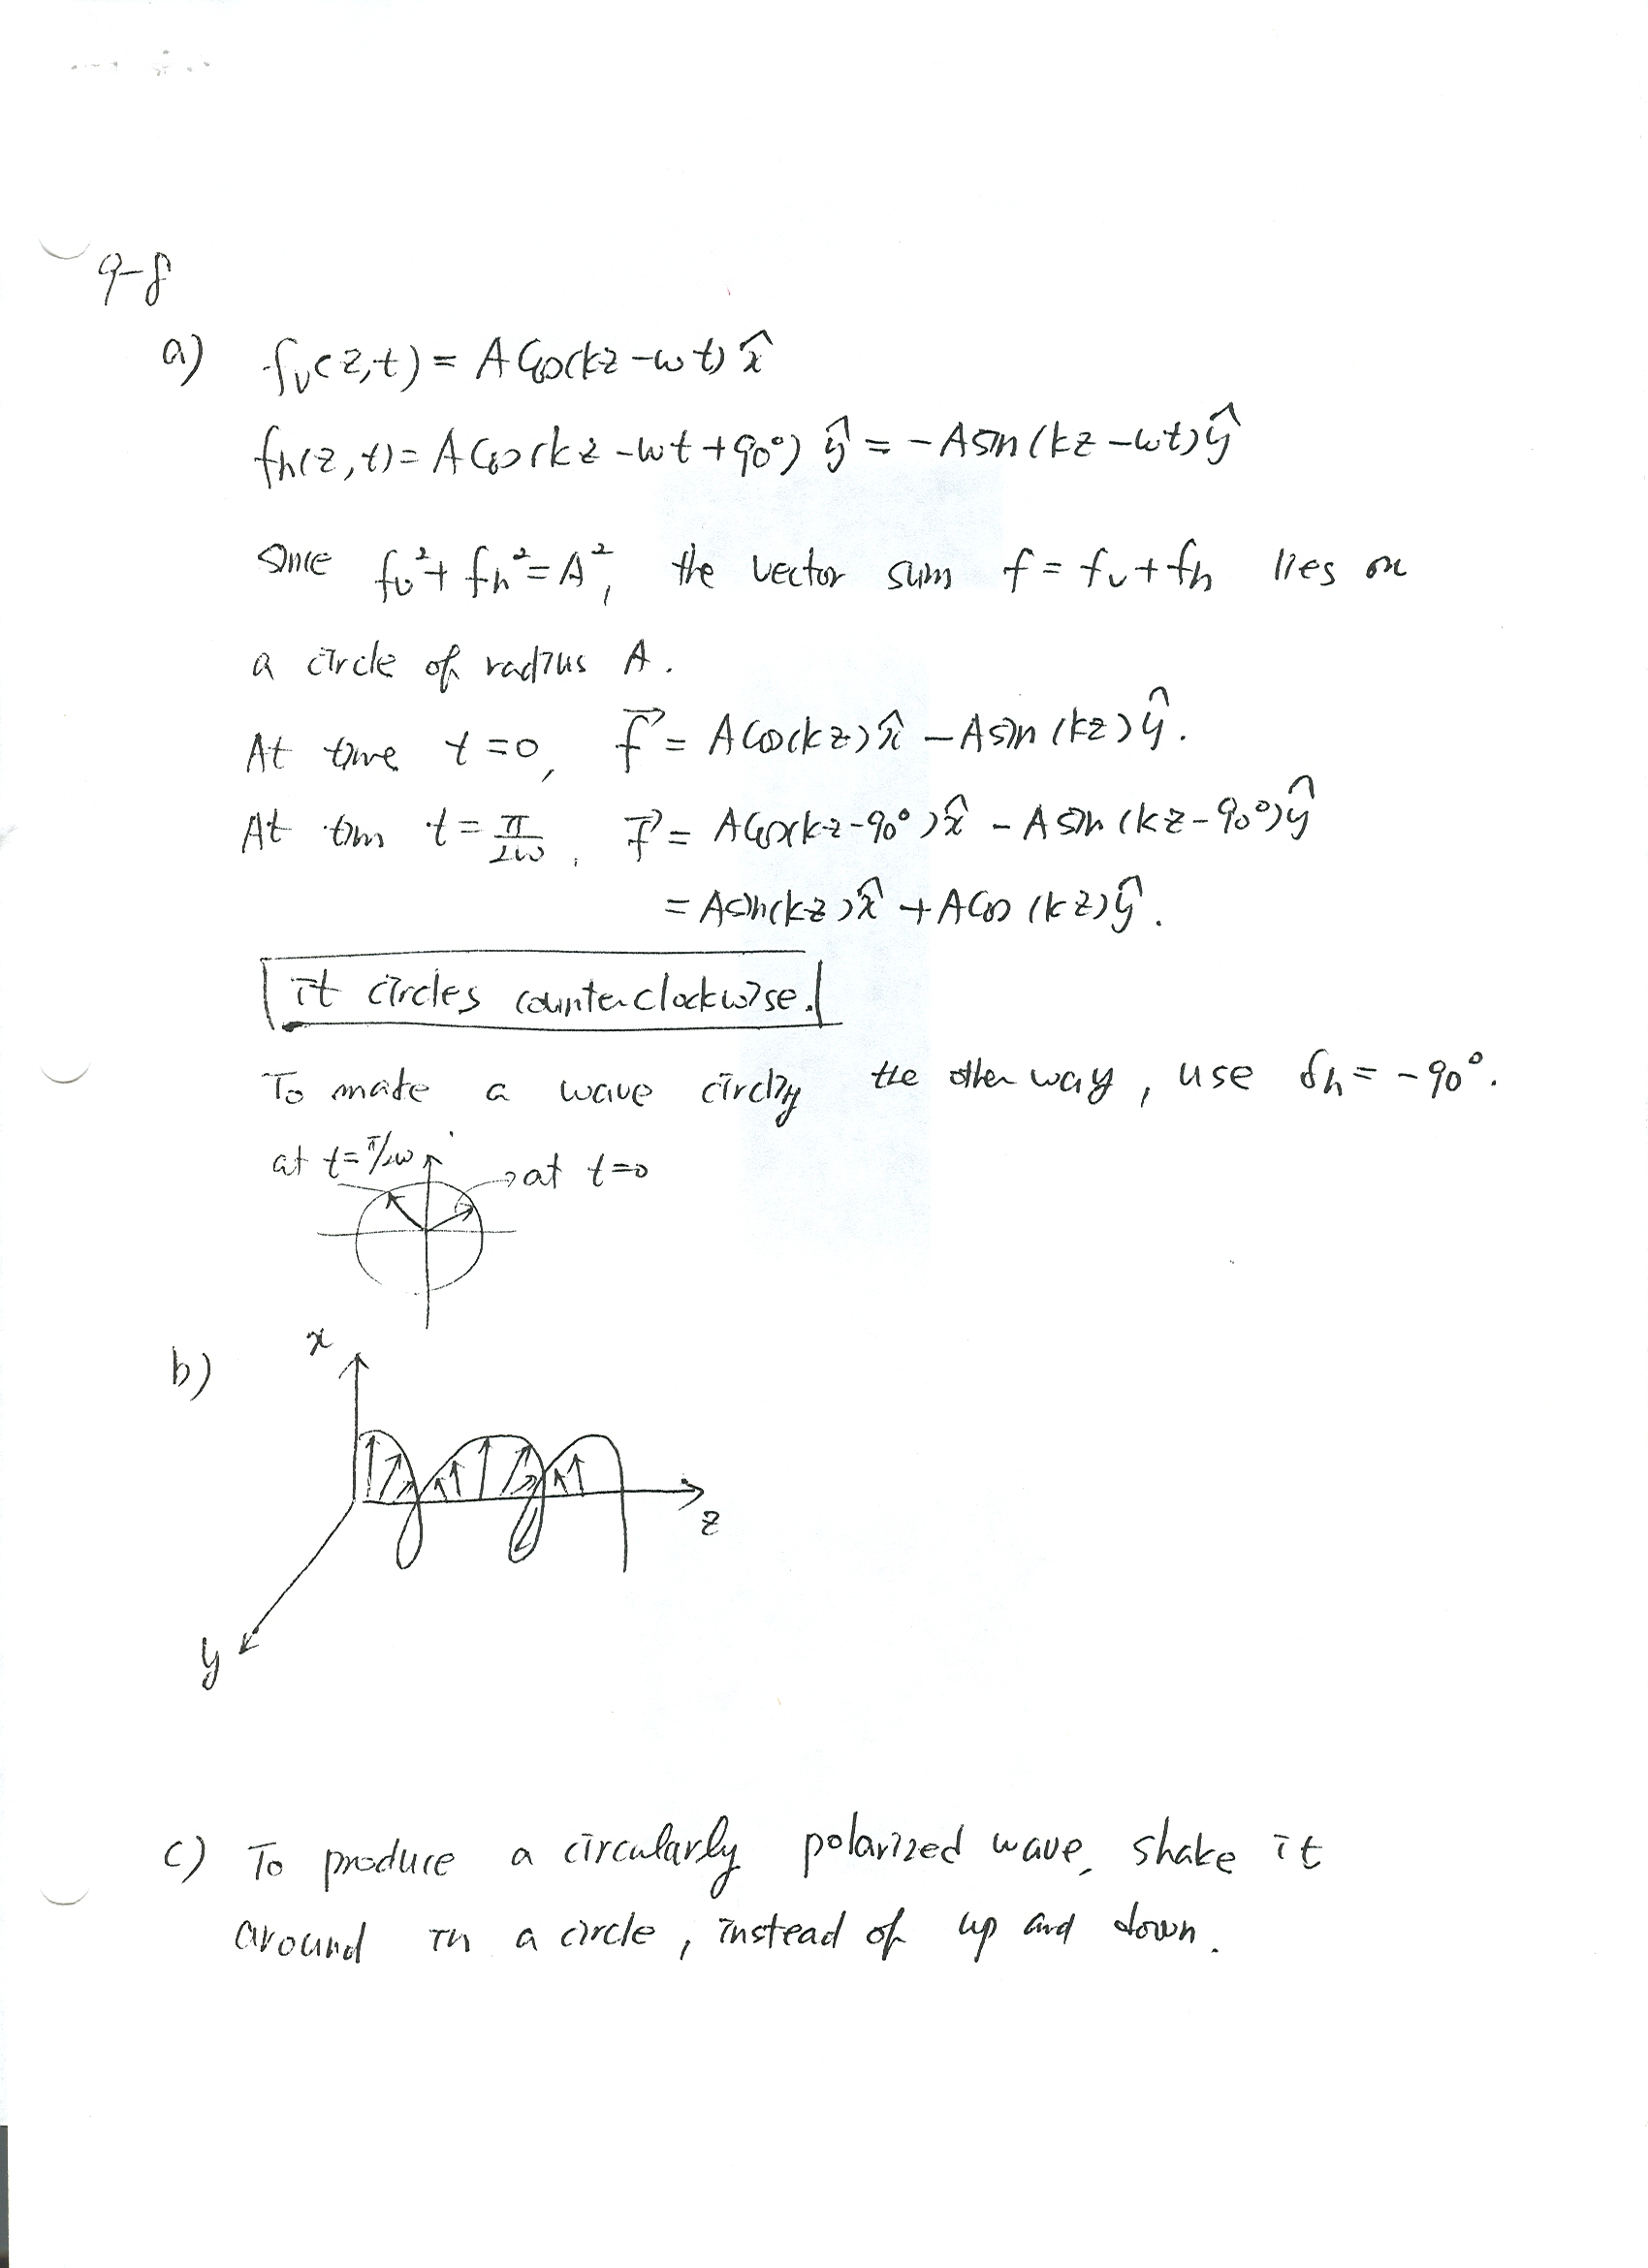 9-8
a) fv(z,t) = A Cos(kz - wt) x̂
fh(z,t) = A Cos(kz - wt + 90°) ŷ = - A sin (kz - wt) ŷ
Since fv² + fh² = A², the vector sum f = fv + fh lies on
a circle of radius A.
At time t = 0, f⃗ = A Cos(kz) x̂ - A sin (kz) ŷ.
At tim t = π/2ω, f⃗ = A Cos(kz - 90°) x̂ - A sin (kz - 90°) ŷ
= A sin(kz) x̂ + A Cos (kz) ŷ.
it circles counterclockwise.
To make a wave circling the other way, use δh = -90°.
at t = π/2ω → at t = 0
b) x
z
y
c) To produce a circularly polarized wave, shake it
around in a circle, instead of up and down.